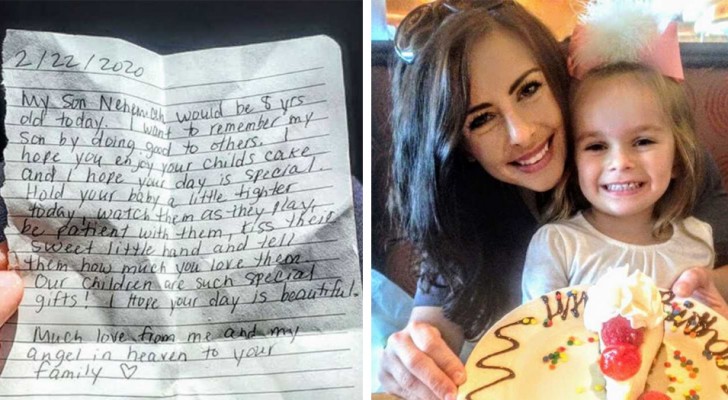 2/22/2020
My Son Nehemiah would be 8 yrs
old today. I want to remember my
son by doing good to others. I
hope you enjoy your childs cake
and I hope your day is special.
Hold your baby a little tighter
today, watch them as they play,
be patient with them, kiss their
sweet little hand and tell
them how much you love them.
Our children are such special
gifts! I Hope your day is beautiful.
Much love from me and my
angel in heaven to your
family ♡